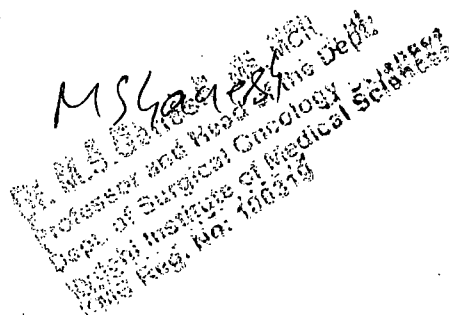 MSGanesh
Dr. M.S. Ganesh MS, MCh
Professor and Head of the Dept.
Dept. of Surgical Oncology
Institute of Medical Sciences
Reg. No: 100319